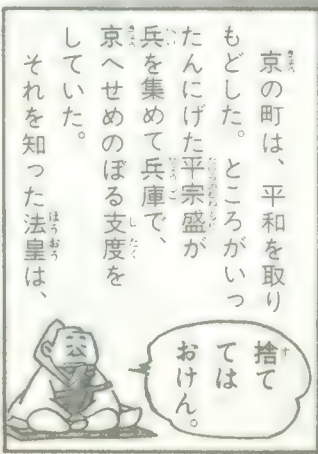 京の町は、平和を取り
もどした。ところがいっ
たんにげた平宗盛が
兵を集めて兵庫で、
京へせめのぼる支度を
していた。
それを知った法皇は、
捨て
ては
おけん。